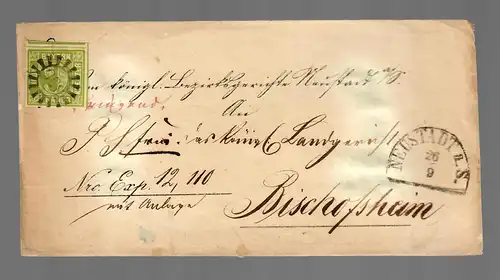 Vom Königl. Bezirksgerichte Neustadt a/S.
Dringend.
An
das königl. Landgericht
NEUSTADT a.S.
26
9
Nro. Exp. 12,110
mit Anlage
Bischofsheim